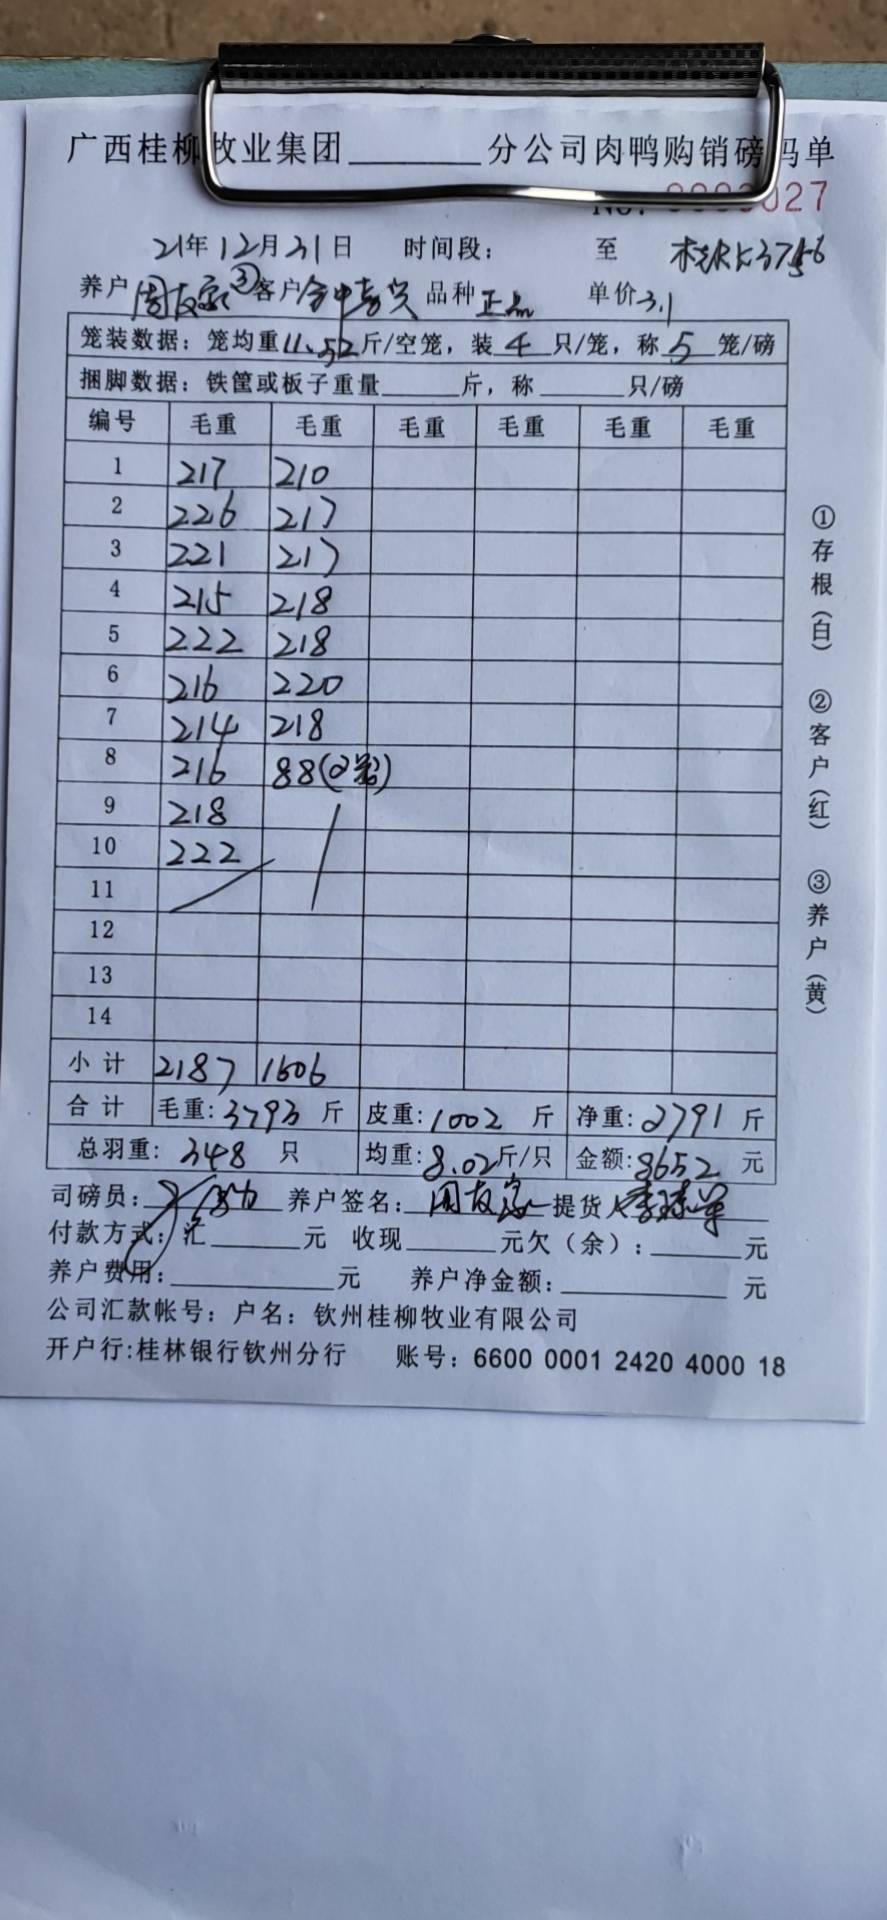 广西桂柳牧业集团 分公司肉鸭购销磅码单
No. 027
21年12月31日 时间段: 至
养户 周友家③ 客户 合中 品种 正 单价 3.1
笼装数据: 笼均重11.52斤/空笼, 装4只/笼, 称5笼/磅
捆脚数据: 铁筐或板子重量 斤, 称 只/磅
编号 毛重 毛重 毛重 毛重 毛重 毛重
1 217 210
2 226 217
3 221 217
4 215 218
5 222 218
6 216 220
7 214 218
8 216 88(2笼)
9 218
10 222
11
12
13
14
小计 2187 1606
合计 毛重: 3793 斤 皮重: 1002 斤 净重: 2791 斤
总羽重: 348 只 均重: 8.02斤/只 金额: 8652 元
司磅员: 养户签名: 周友家 提货人
付款方式: 汇 元 收现 元欠(余): 元
养户费用: 元 养户净金额: 元
公司汇款帐号: 户名: 钦州桂柳牧业有限公司
开户行:桂林银行钦州分行 账号: 6600 0001 2420 4000 18
①存根(白) ②客户(红) ③养户(黄)